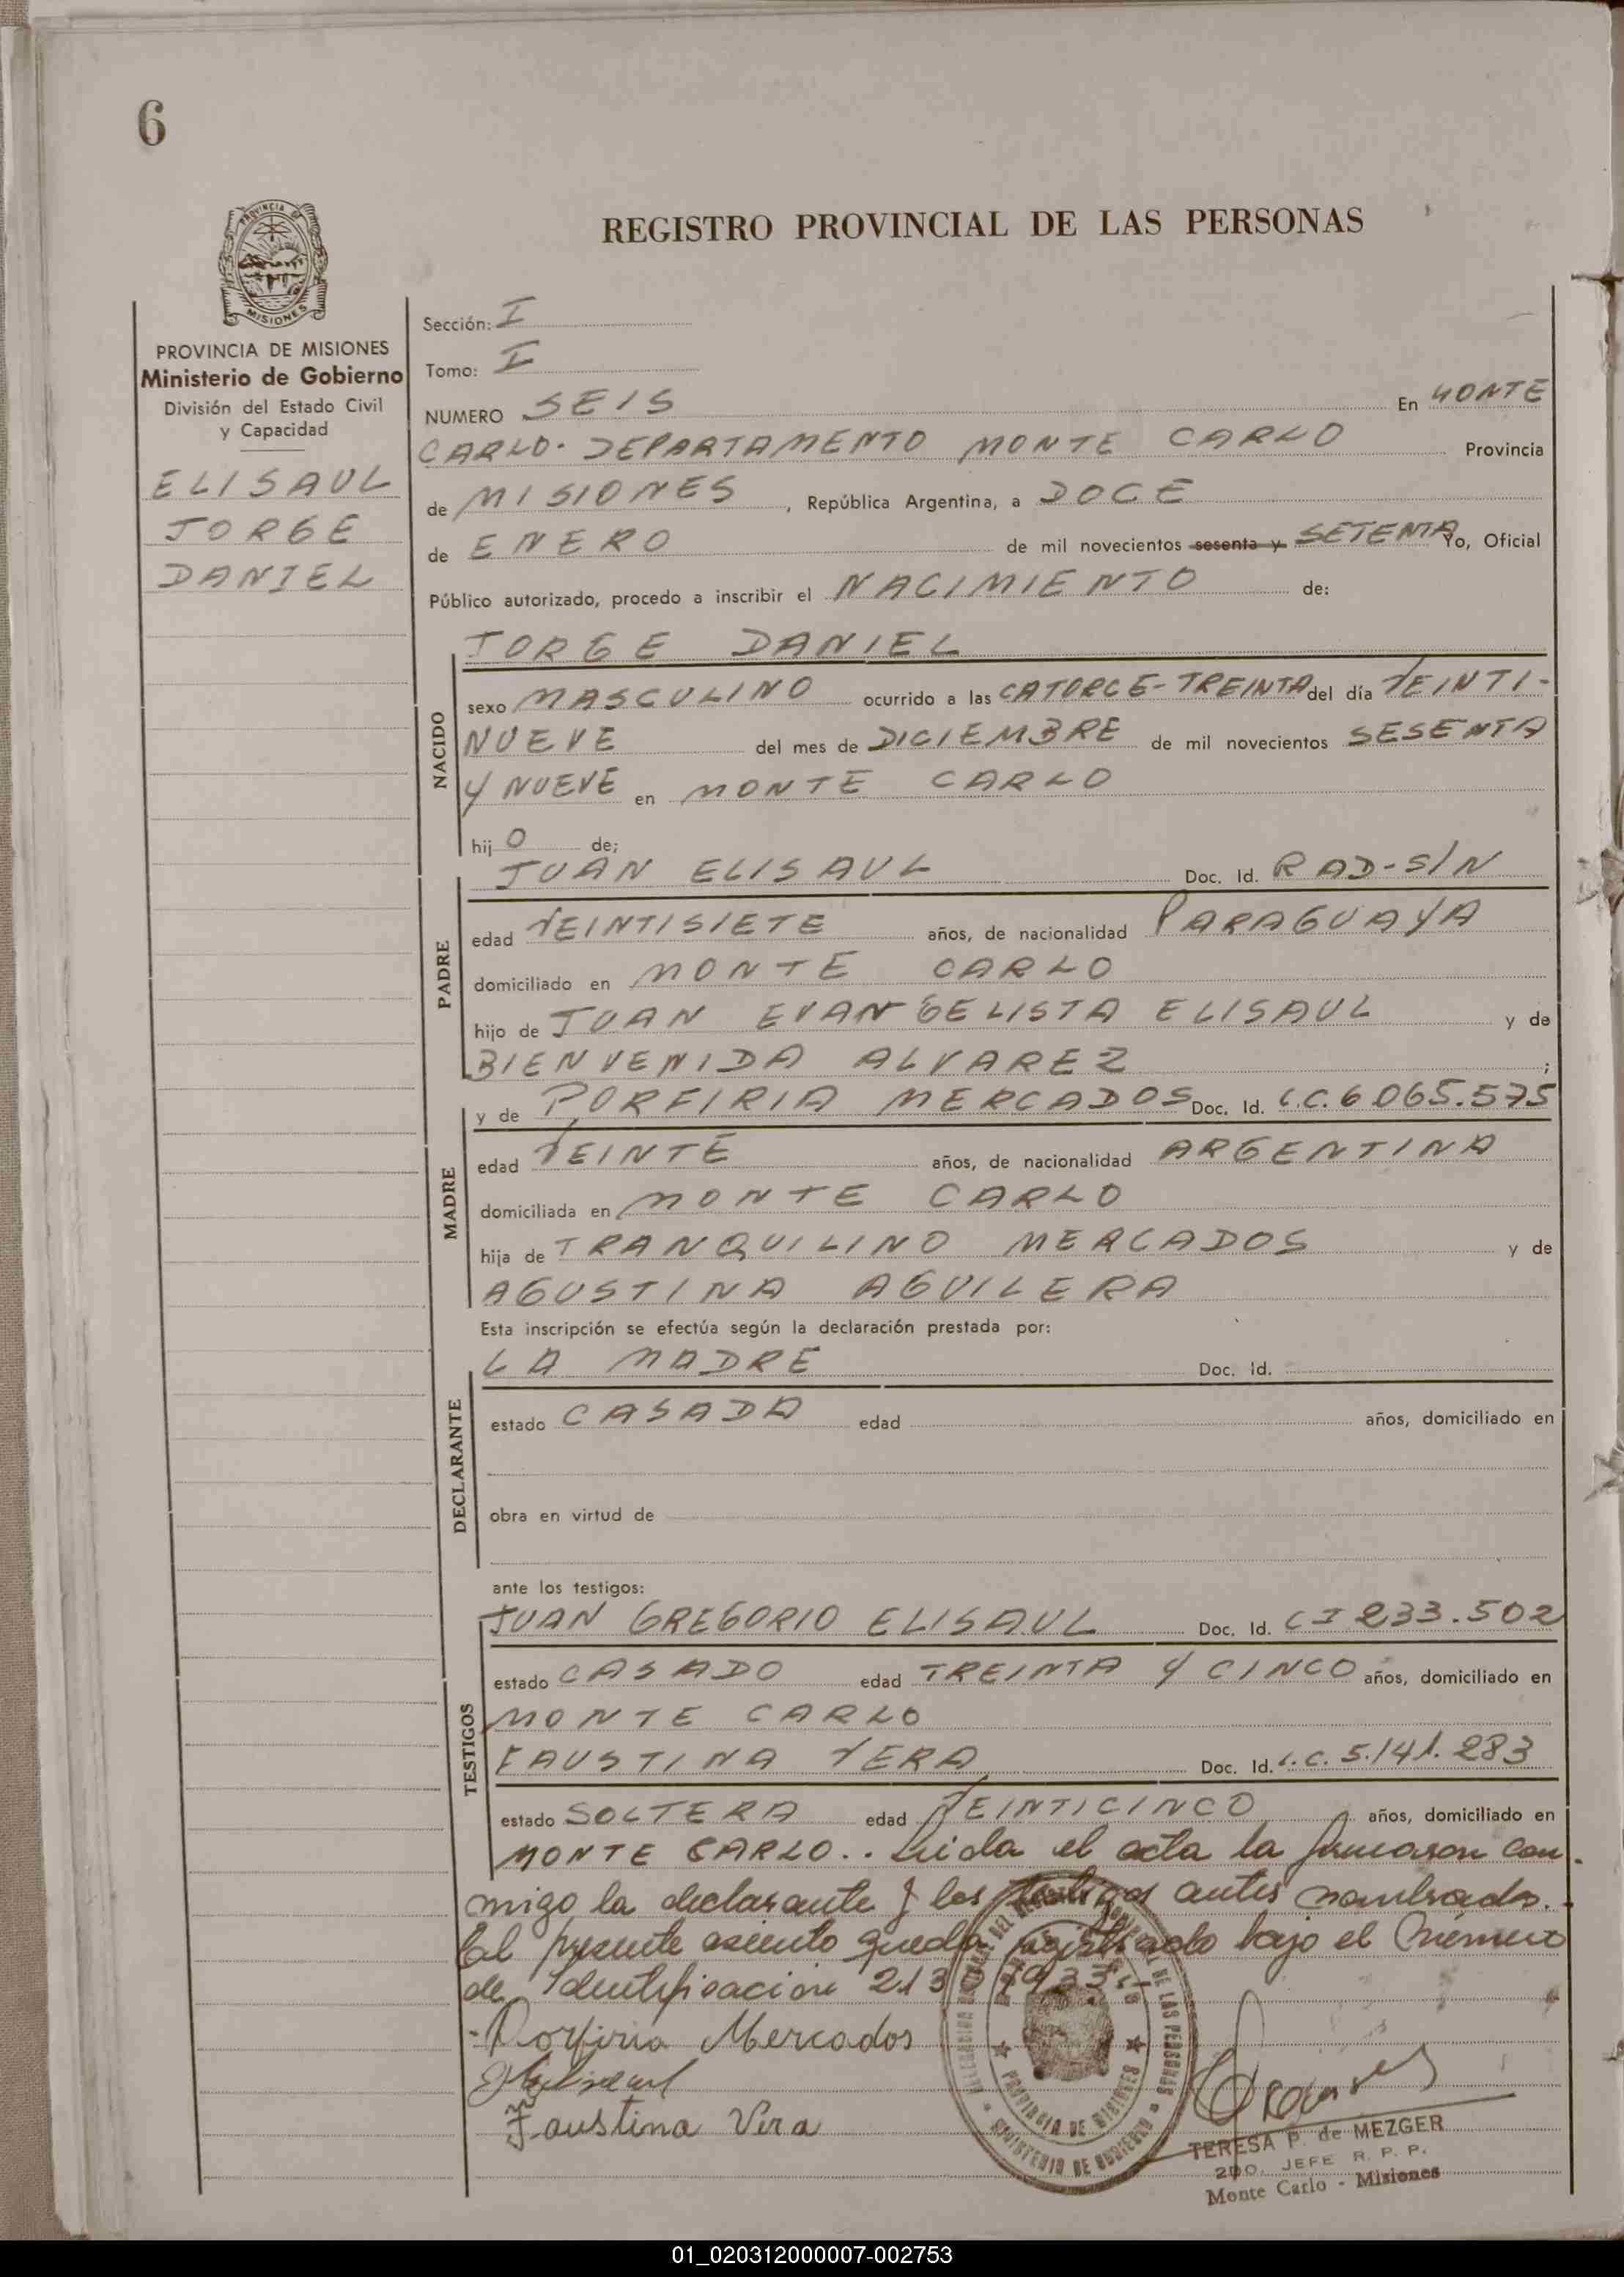 6
PROVINCIA DE
MISIONES
REGISTRO PROVINCIAL DE LAS PERSONAS
PROVINCIA DE MISIONES
Ministerio de Gobierno
División del Estado Civil
y Capacidad
ELISAUL
JORGE
DANIEL
Sección: I
Tomo: I
NUMERO SEIS En MONTE
CARLO. DEPARTAMENTO MONTE CARLO Provincia
de MISIONES, República Argentina, a DOCE
de ENERO de mil novecientos sesenta y SETENTA Yo, Oficial
Público autorizado, procedo a inscribir el NACIMIENTO de:
JORGE DANIEL
NACIDO
sexo MASCULINO ocurrido a las CATORCE-TREINTA del día VEINTI-
NUEVE del mes de DICIEMBRE de mil novecientos SESENTA
Y NUEVE en MONTE CARLO
hijo de;
JUAN ELISAUL Doc. Id. RAD-S/N
PADRE
edad VEINTISIETE años, de nacionalidad PARAGUAYA
domiciliado en MONTE CARLO
hijo de JUAN EVANGELISTA ELISAUL y de
BIENVENIDA ALVAREZ ;
y de PORFIRIA MERCADOS Doc. Id. L.C. 6.065.575
MADRE
edad VEINTE años, de nacionalidad ARGENTINA
domiciliada en MONTE CARLO
hija de TRANQUILINO MERCADOS y de
AGUSTINA AGUILERA
Esta inscripción se efectúa según la declaración prestada por:
LA MADRE Doc. Id.
DECLARANTE
estado CASADA edad años, domiciliado en
obra en virtud de
ante los testigos:
JUAN GREGORIO ELISAUL Doc. Id. C I 233.502
TESTIGOS
estado CASADO edad TREINTA Y CINCO años, domiciliado en
MONTE CARLO
FAUSTINA VERA Doc. Id. L.C. 5.141.283
estado SOLTERA edad VEINTICINCO años, domiciliado en
MONTE CARLO.. Leida el acta la firmaron con
migo la declarante y los testigos antes nombrados.-
El presente asiento queda registrado bajo el Número
de Identificación 213
Porfiria Mercados
Faustina Vera
PROVINCIA DE MISIONES
MINISTERIO DE GOBIERNO
TERESA P. de MEZGER
2DO. JEFE R. P. P.
Monte Carlo - Misiones
01_020312000007-002753